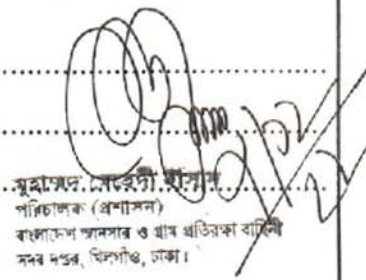 মুহাম্মদ মেহেদী হাসান
পরিচালক (প্রশাসন)
বাংলাদেশ আনসার ও গ্রাম প্রতিরক্ষা বাহিনী
সদর দপ্তর, খিলগাঁও, ঢাকা।